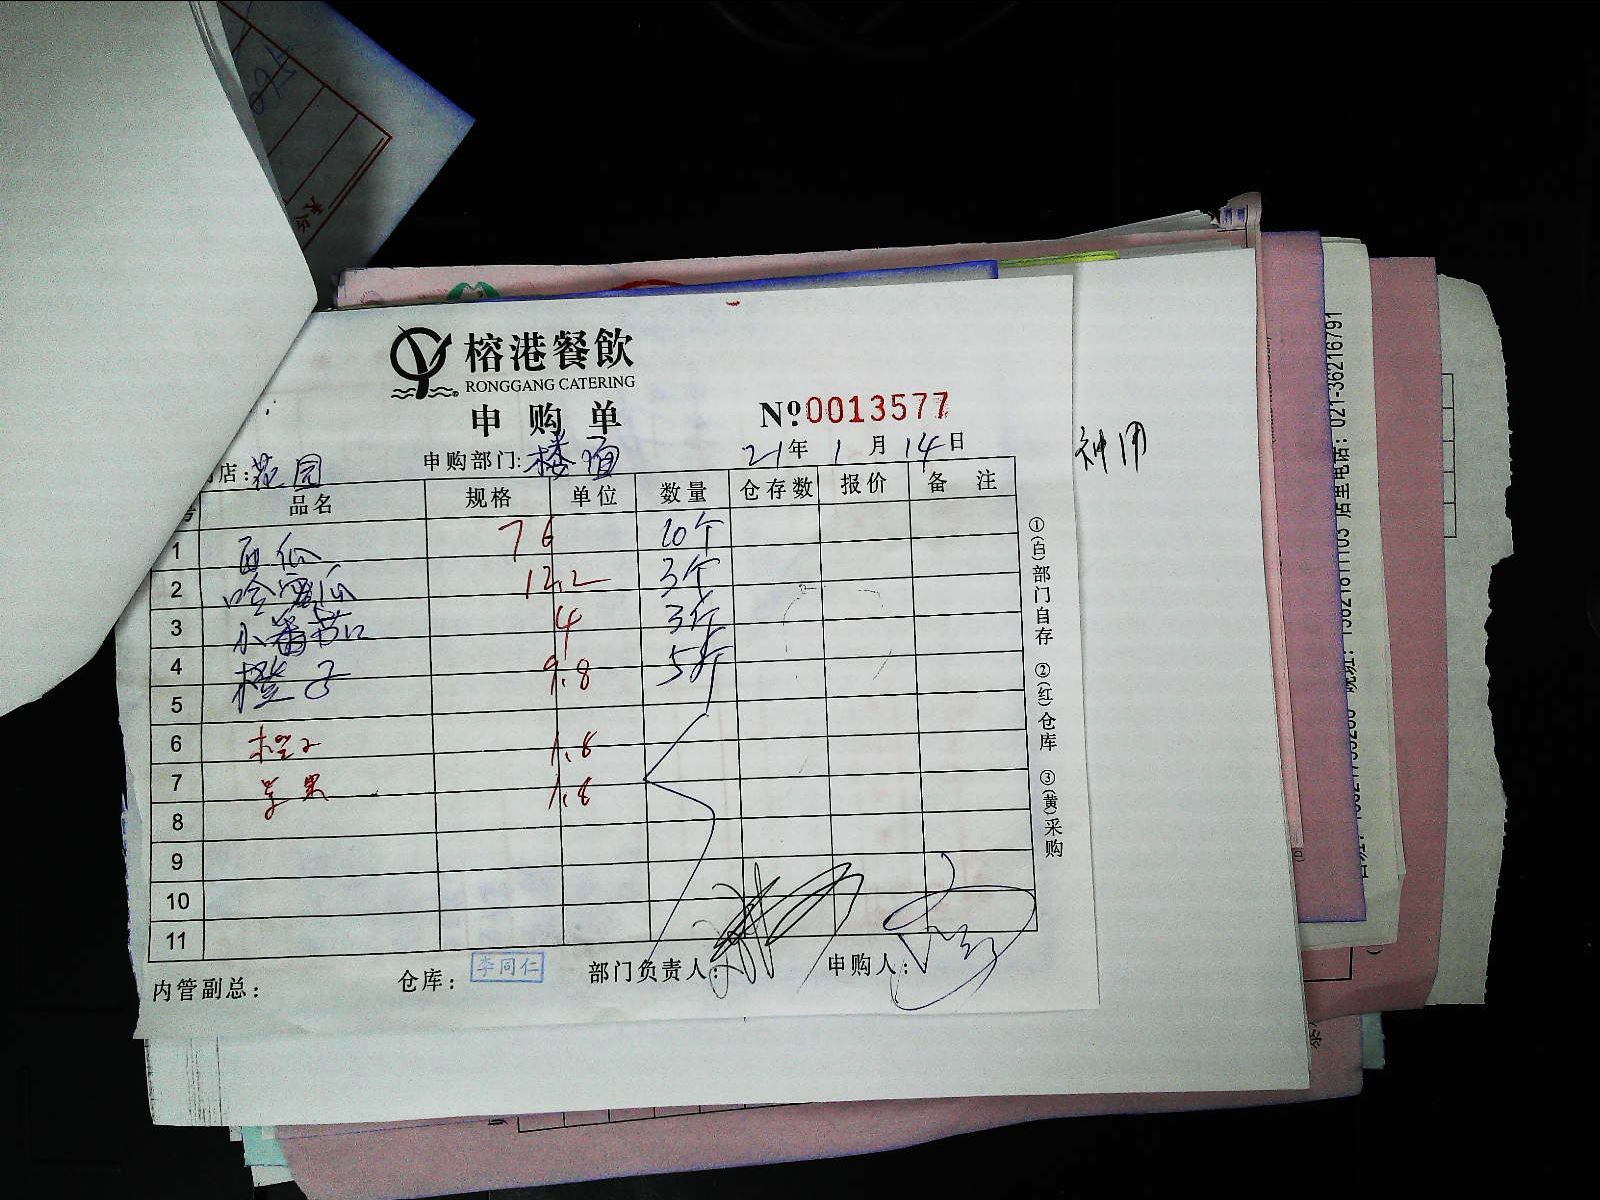 榕港餐飲
RONGGANG CATERING
申购单
№ 0013577
店: 花园 申购部门: 楼面 21年 1月 14日
品名 规格 单位 数量 仓存数 报价 备注
1 西瓜 76 10个
2 哈密瓜 12.2 3个
3 小番茄 4 3斤
4 橙子 9.8 5斤
5
6 橙子 1.8
7 苹果 1.8
8
9
10
11
内管副总: 仓库: 李同仁 部门负责人: 申购人:
①(白)部门自存 ②(红)仓库 ③(黄)采购
店里电话: 021-36216791